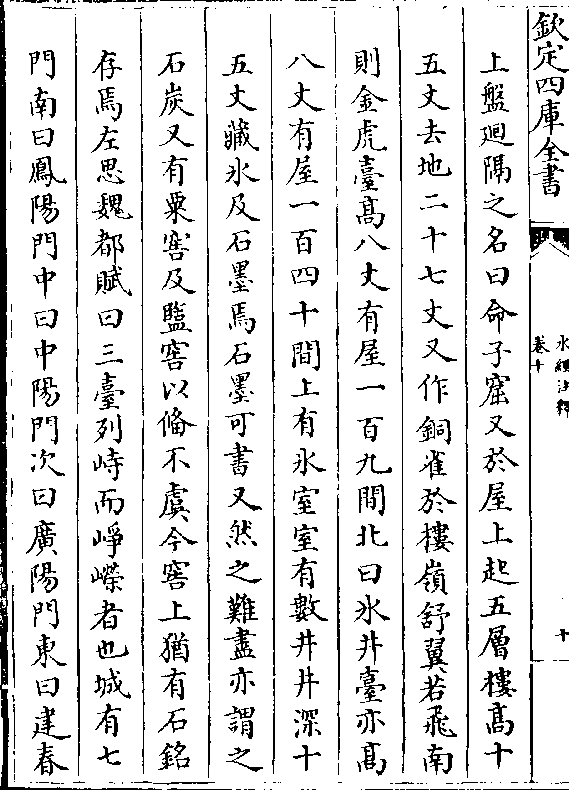 欽定四庫全書
水經注釋
卷十
十
上盤廻隅之名曰命子窟又於屋上起五層樓髙十
五丈去地二十七丈又作銅雀於樓嶺舒翼若飛南
則金虎臺髙八丈有屋一百九間北曰氷井臺亦髙
八丈有屋一百四十間上有氷室室有數井井深十
五丈藏氷及石墨焉石墨可書又然之難盡亦謂之
石炭又有粟窖及鹽窖以偹不虞今窖上猶有石銘
存焉左思魏都賦曰三臺列峙而崢嶸者也城有七
門南曰鳳陽門中曰中陽門次曰廣陽門東曰建春